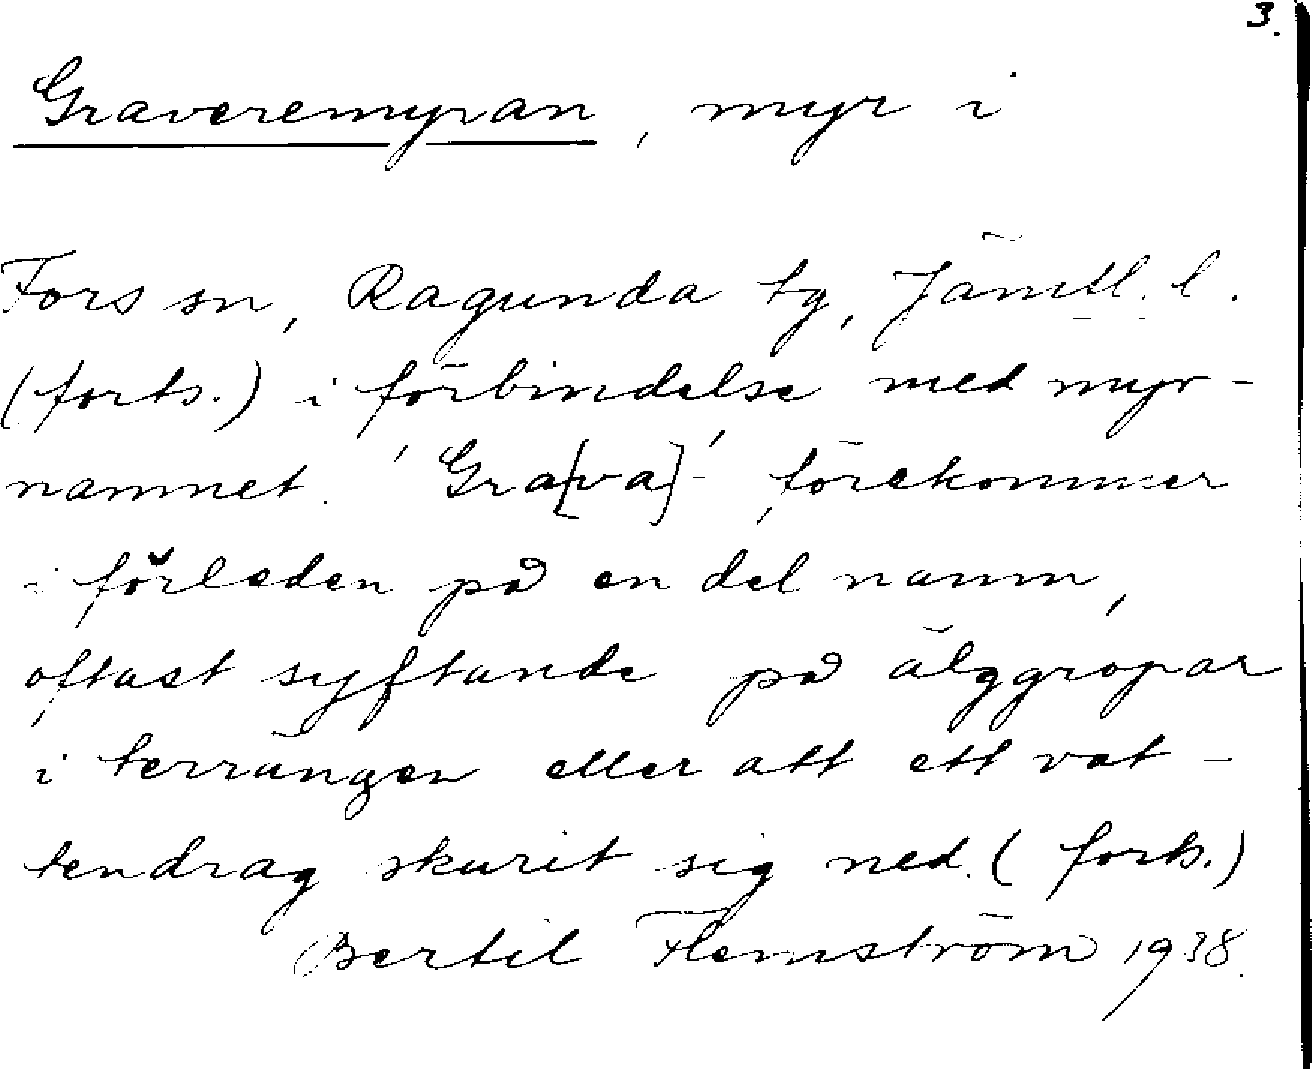 3.
Graveremyran, myr i
Fors sn, Ragunda tg, Jämtl. l.
(forts.) i förbindelse med myr-
namnet. 'Gra[va]-' förekommer
i förleden på en del namn,
oftast syftande på älggropar
i terrängen eller att ett vat-
tendrag skurit sig ned. (forts.)
Bertil Flemström 1938.